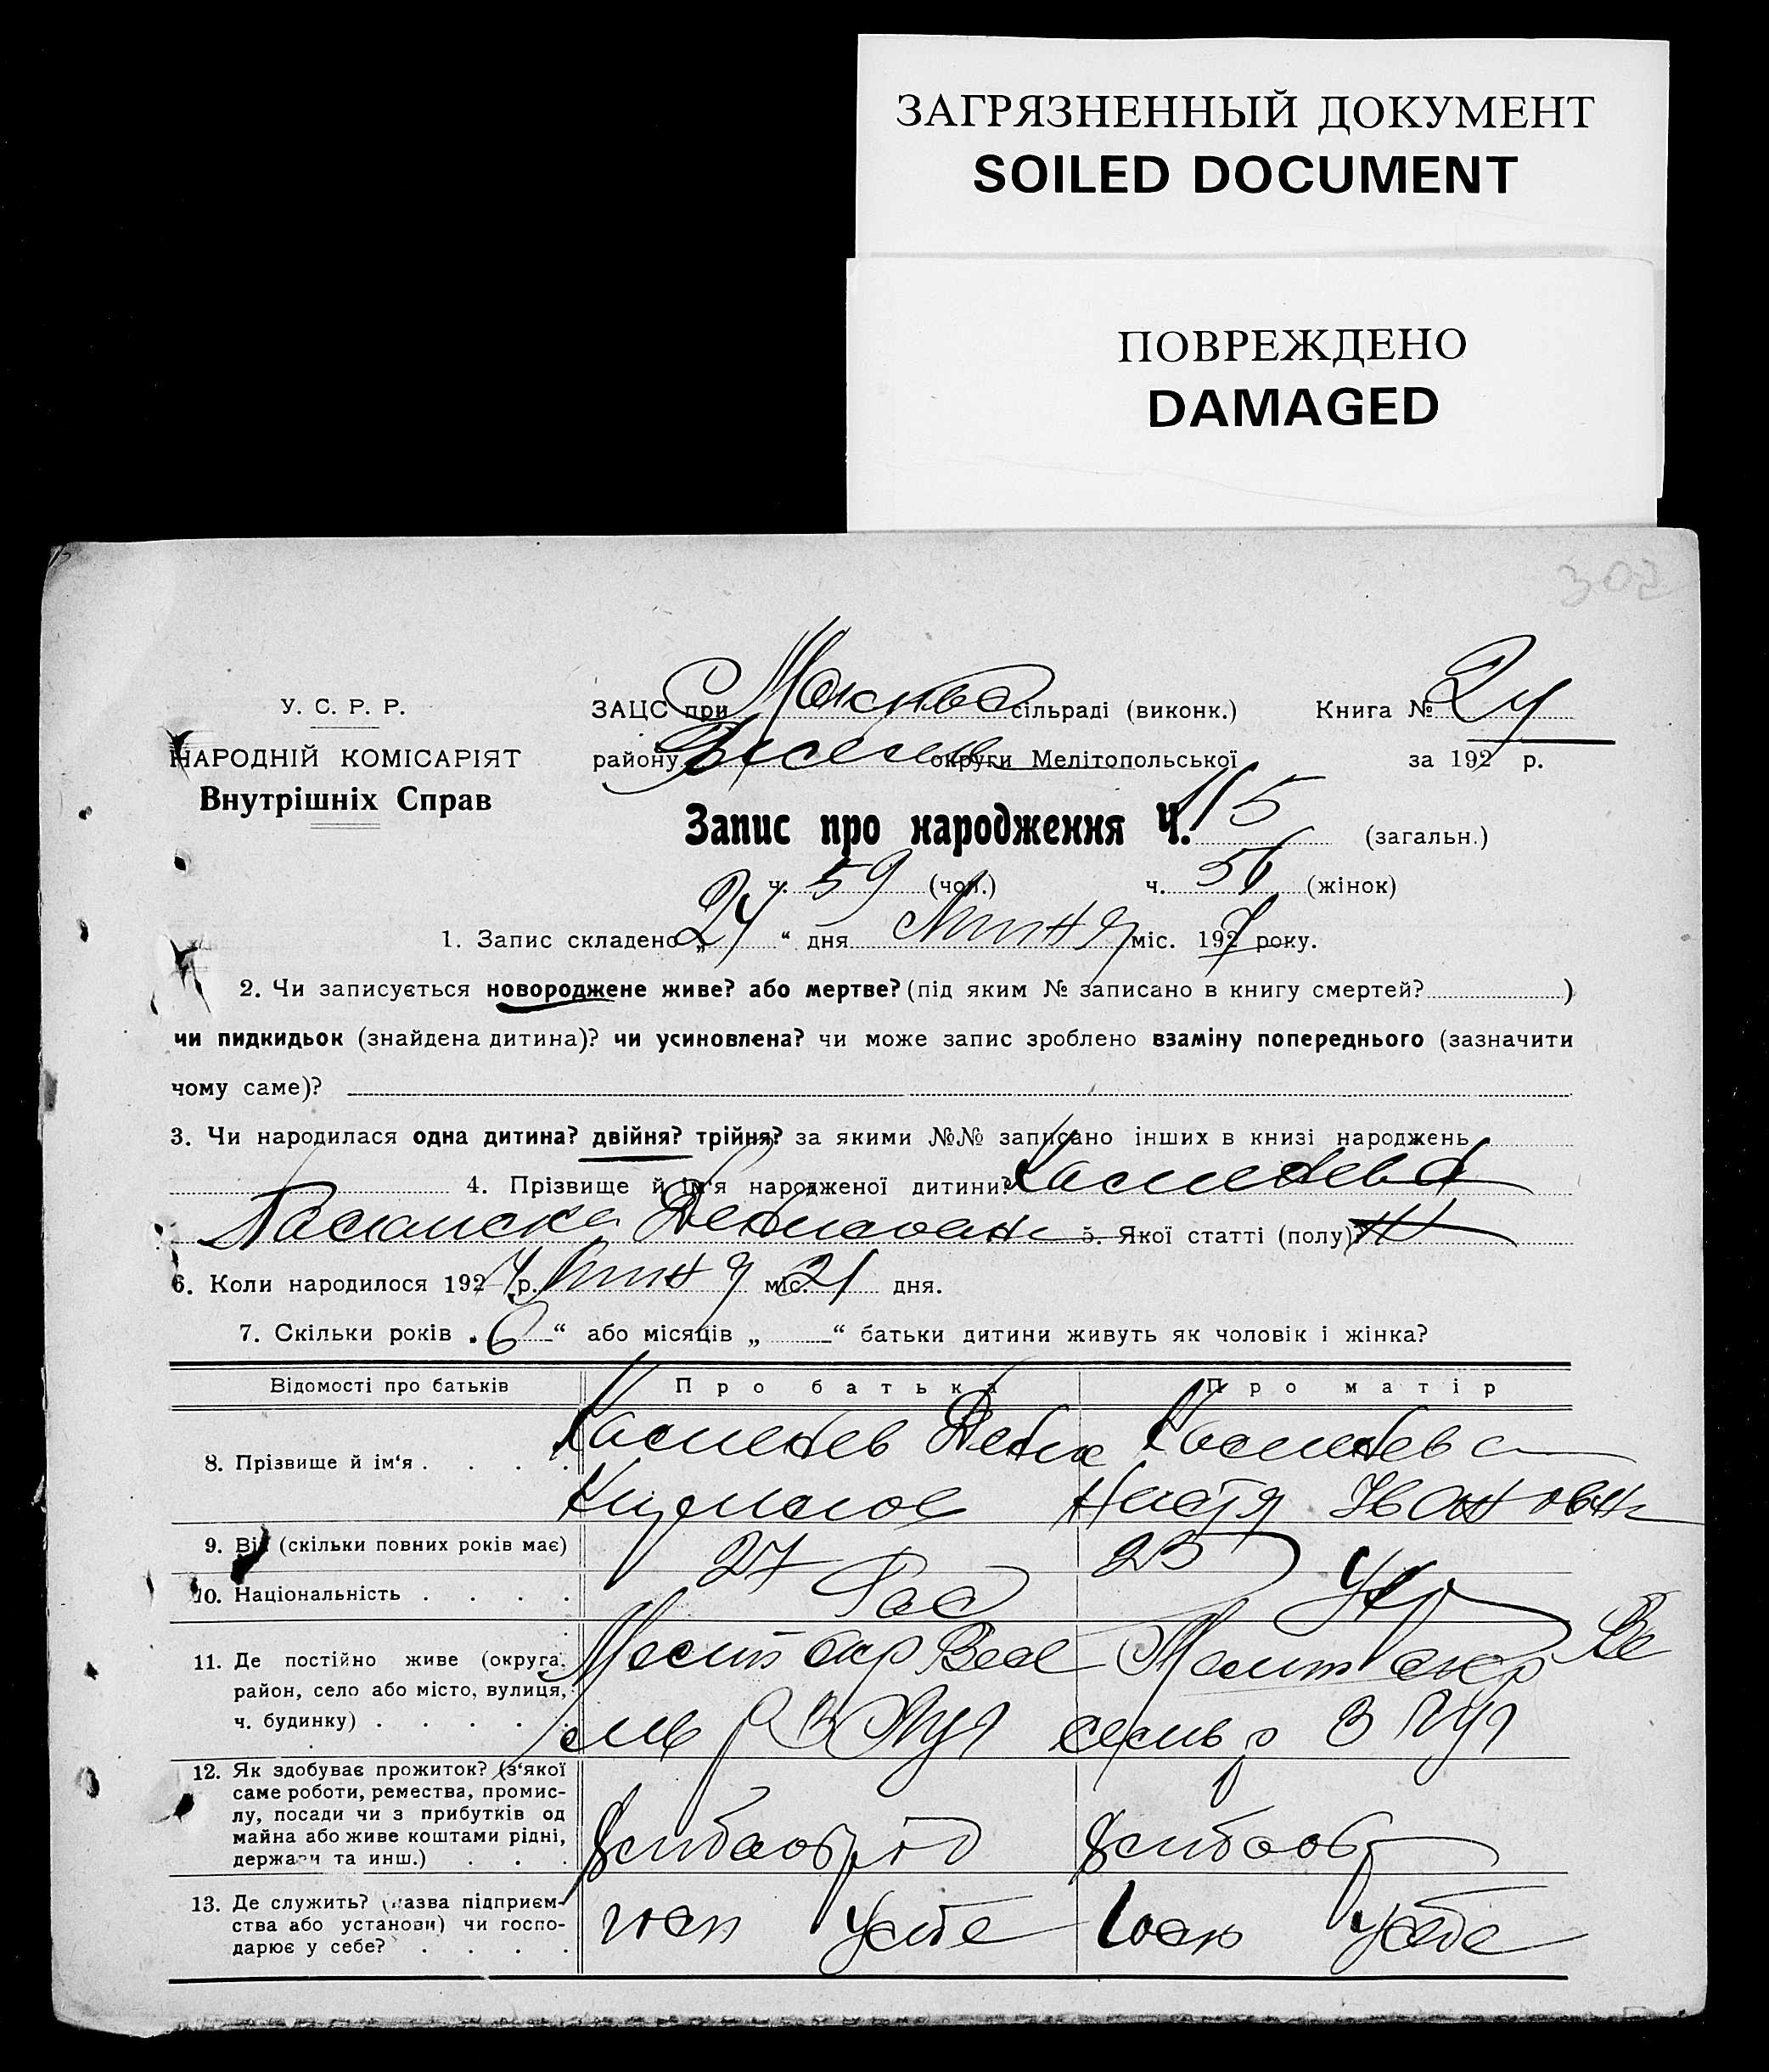 ЗАГРЯЗНЕННЫЙ ДОКУМЕНТ
SOILED DOCUMENT
ПОВРЕЖДЕНО
DAMAGED
302
У. С. Р. Р.
НАРОДНІЙ КОМІСАРІЯТ
Внутрішніх Справ
ЗАЦС при сільраді (виконк.) Книга №
району округи Мелітопольської за 192 р.
Запис про народження Ч. 115 (загальн.)
ч. 59 (чол.) ч. 56 (жінок)
1. Запис складено „24“ дня Липня міс. 1927 року.
2. Чи записується новороджене живе? або мертве? (під яким № записано в книгу смертей? )
чи пидкидьок (знайдена дитина)? чи усиновлена? чи може запис зроблено взаміну попереднього (зазначити
чому саме)?
3. Чи народилася одна дитина? двійня? трійня? за якими №№ записано інших в книзі народжень
4. Прізвище й ім'я народженої дитини?
5. Якої статті (полу)? Ж
6. Коли народилося 1927 р. Липня міс. 21 дня.
7. Скільки років „6“ або місяців „ “ батьки дитини живуть як чоловік і жінка?
Відомості про батьків Про батька Про матір
8. Прізвище й ім'я . . . .
Настя Івановн
9. Вік (скільки повних років має) 27 25
10. Національність . . . . Рос Укр
11. Де постійно живе (округа,
район, село або місто, вулиця,
ч. будинку) . . . . .
Меліт окр Весе Меліт окр Ве
12. Як здобуває прожиток? (з'якої
саме роботи, ремества, промис-
лу, посади чи з прибутків од
майна або живе коштами рідні,
держави та инш.) . . .
хлібороб хлібороб
13. Де служить? (назва підприєм-
ства або установи) чи госпо-
дарює у себе? . . . .
госп усебе госп усебе